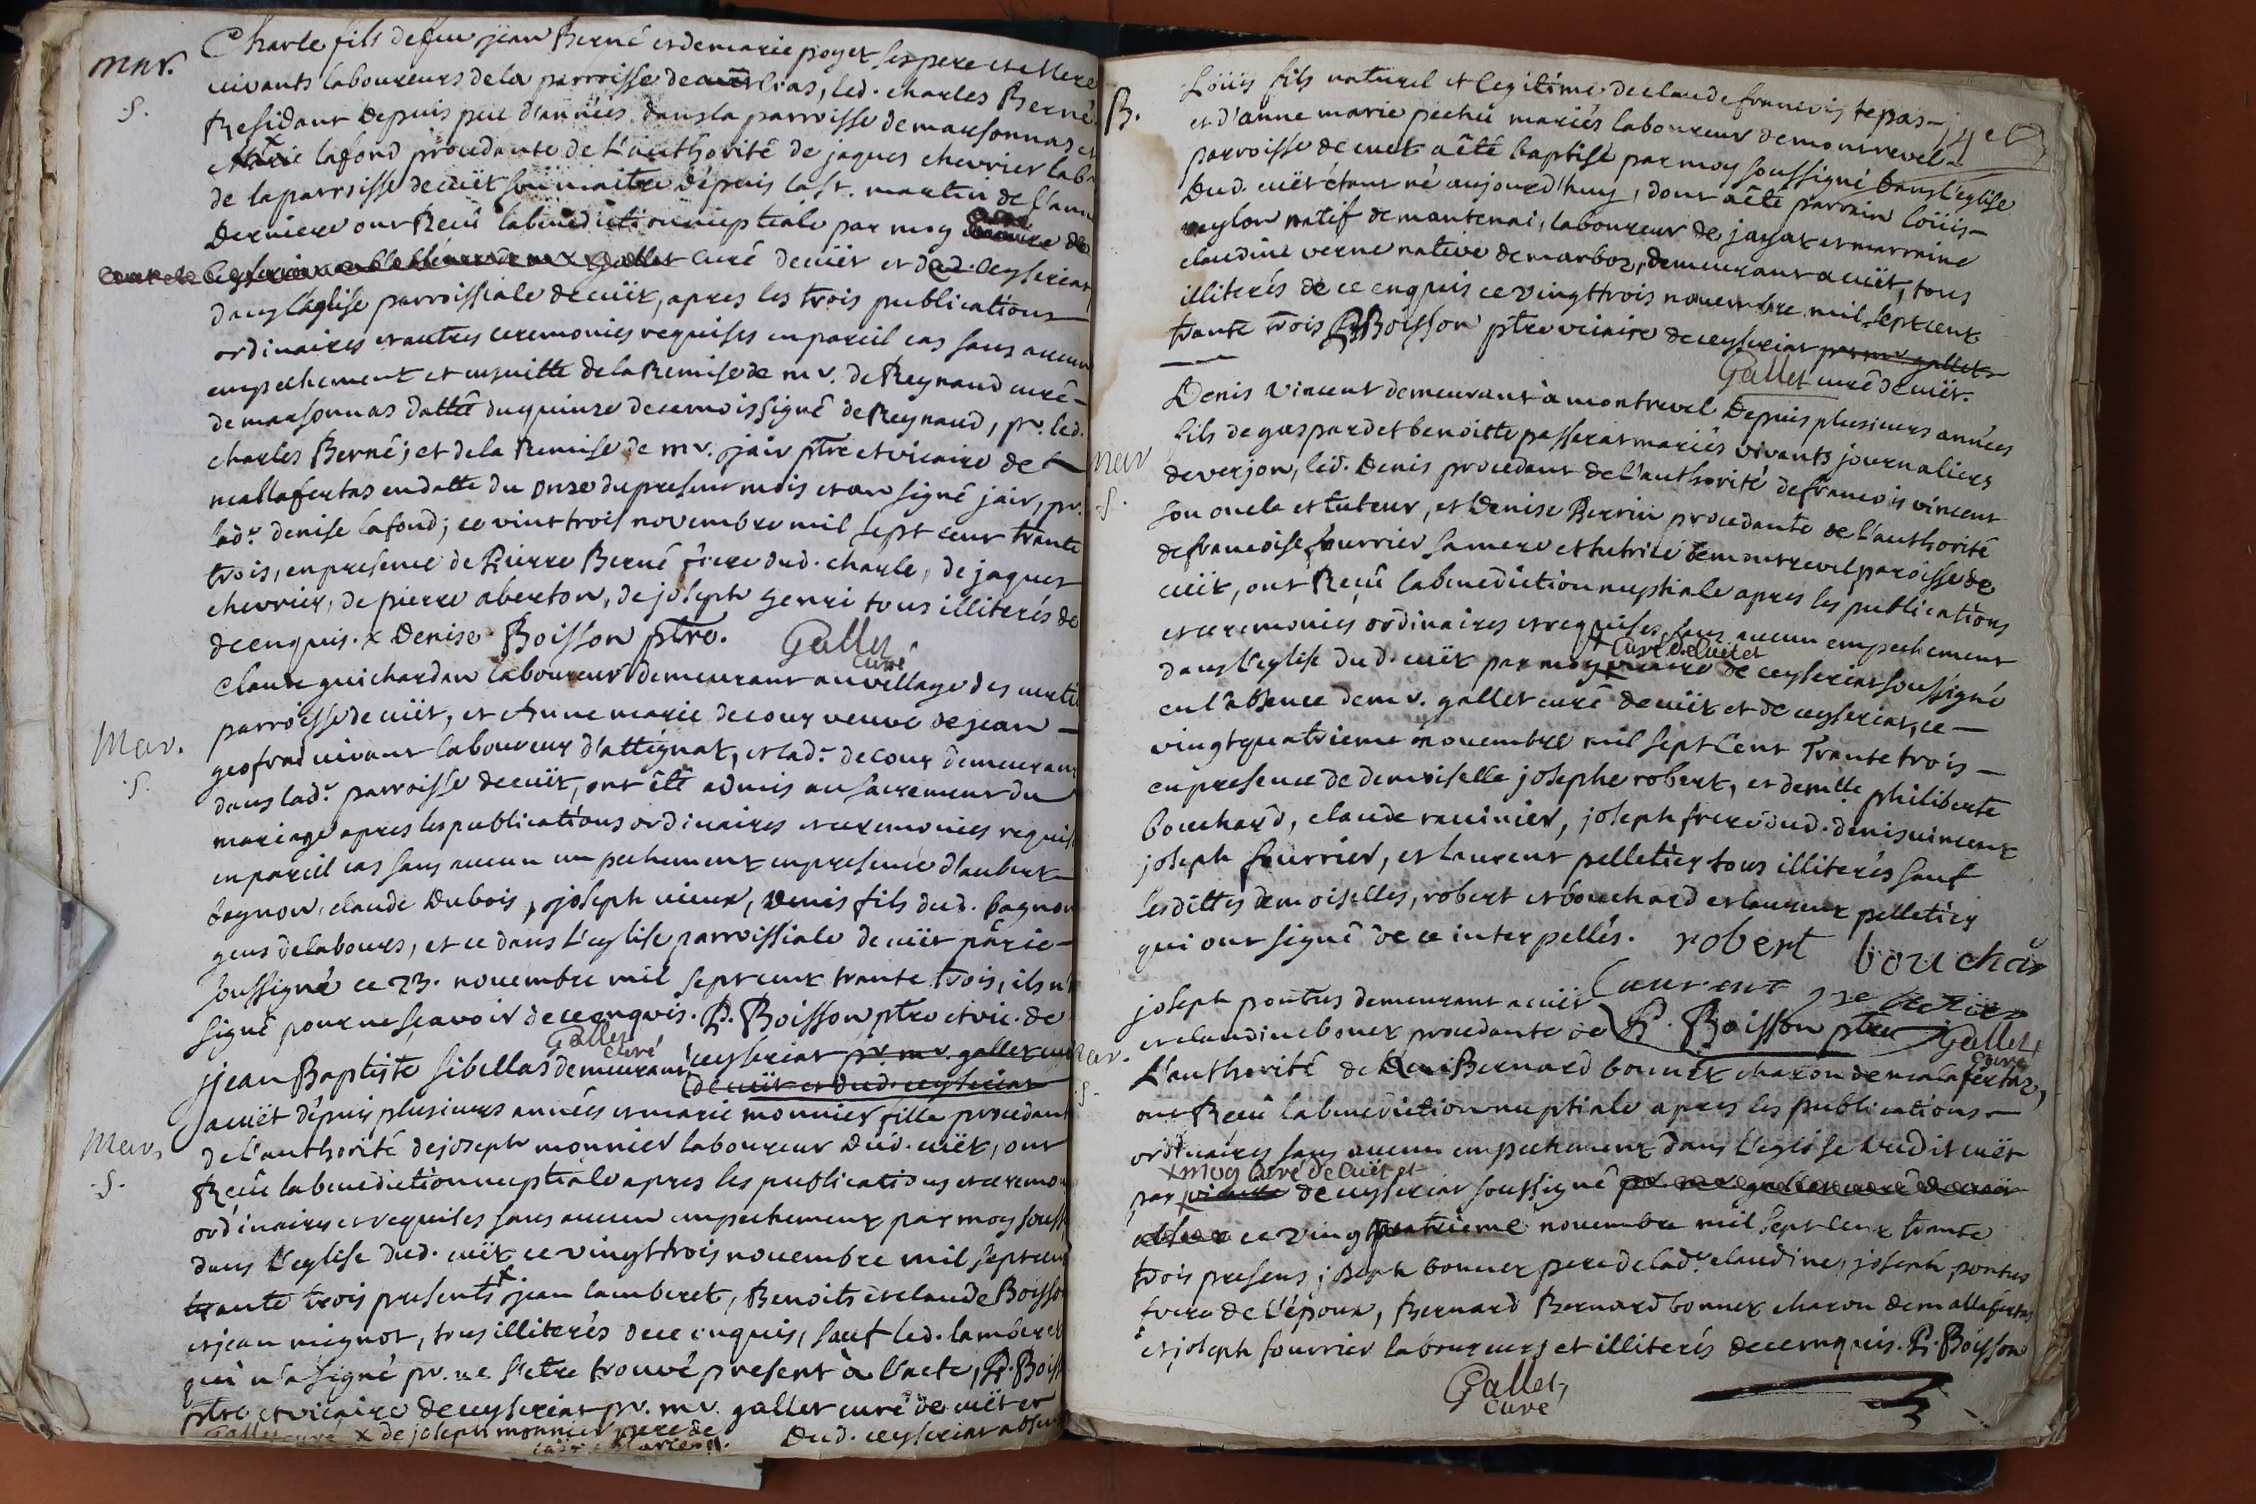 mar.
s.
Charle fils de feu jean Berné et de marie poyet ses pere et Mere
vivants laboureurs de la parroisse de , led. charles Berné
Residant Depuis peu d'années dans la parroisse de marsonnas et
lafond procedante de L'authorité de jaques chevrier lab
de la parroisse de cuët son maitre depuis la st. martin de l'ann
Derniere ont Receu la benediction nuptiale par moy
curé de cuët et dud. ceyseriat
dans l'eglise parroissiale de cuët, apres les trois publications
ordinaires et autres ceremonies requises en pareil cas sans aucun
empechement et ensuitte de la Remise de mr. de Reynaud curé
de marsonnas dattée du quinze de ce mois signé de Reynaud, pr. led.
charles Berné; et de la Remise de mr. jair ptre et vicaire de
mallafertas en datte du onze du present mois et an signé jair, pr.
lad.e denise lafond; ce vint trois novembre mil sept cent trante
trois, en presence de Pierre Berné frere dud. charle, de jaques
chevrier, de pierre aberton, de joseph genri tous illiterés de
de ce enquis. x Denise Boisson ptre. Gallet
curé
mar.
s.
Claude guichardan laboureur demeurant au village des
parroisse de cuët, et Anne marie decour veuve de jean
geofrai vivant laboureur d'attignat, et lad.e decour demeurant
dans lad.e parroisse de cuët, ont êté admis au sacrement du
mariage apres les publications ordinaires et ceremonies requis
en pareil cas sans aucun empechement en presence d'aubert
bagnon, claude Dubois, joseph vieux, Denis fils dud. bagnon
gens de labours, et ce dans l'eglise parroissiale de cuët par je
soussigné ce 23. novembre mil sept cent trante trois, ils n'
signé pour ne sçavoir de ce enquis. P. Boisson ptre et vic. de
Gallet
curé
ceyseriat pr. mr. gallet curé
de cuët et dud. ceyseriat
mar.
s.
jean Baptiste sibellas demeurant
a cuët depuis plusieurs années et marie monnier fille procedant
de l'authorité de joseph monnier laboureur dud. cuët, ont
Receu la benediction nuptiale apres les publications et ceremo
ordinaires et requises sans aucun empechement par moy souss
dans l'eglise dud. cuët ce vingt trois novembre mil sept cent
trante trois presents x jean lamberet, Benoits et claude Boisso
et jean mignot, tous illiterés de ce enquis, sauf led. lamberet
qui n'a signé pr. ne s'etre trouvé present à l'acte, P. Boiss
ptre, et vicaire de ceyseriat pr. mr. gallet curé de cuët et
dud. ceyseriat absen
Gallet curé x de joseph monnier pere de
B.
Loüis fils naturel et legitime de claude et d'anne marie pechu mariés laboureur de montrevel
parroisse de cuet a êté baptisé par moy soussigné dans l'eglise
dud. cuët étant né aujourd'huy, dont a êté parrain loüis
natif de mantenai, laboureur de jayat et marraine
claudine verne native de marboz, demeurant a cuët, tous
illiterés de ce enquis ce vingt trois novembre mil sept cent
trante trois P. Boisson ptre vicaire de ceyseriat pr mr gallet
Gallet curé de cuët.
mar
s.
Denis vincent demeurant à montrevel Depuis plusieurs années
fils de gaspard et benoitte passerat mariés vivants journaliers
de verjon, led. Denis procedant de l'authorité de francois vincent
son oncle et tuteur, et Denise Perrin procedante de l'authorité
de francoise fourrier sa mere et tutrice de montrevel paroisse de
cuët, ont Receu la benediction nuptiale apres les publications
et ceremonies ordinaires et requises, sans aucun empechement
+ curé de cuët et
dans l'eglise dud. cuët par moy vicaire de ceyseriat soussigné
en l'absence de mr. gallet curé de cuët et de ceyseriat, ce
vingt quatrieme novembre mil sept cent Trante trois
en presence de demoiselle josephe robert, et demlle philiberte
bouchard, claude ravinier, joseph frere dud. denis vincent
joseph fourrier, et laurent pelletier tous illiterés sauf
lesdittes demoiselles, robert et bouchard et laurent pelletier
qui ont signé de ce interpellés. robert bouchar
Laurent pelletier
P. Boisson ptre Gallet
curé
mar.
s.
joseph pontus demeurant a cuët
et claudine bonet procedante de
L'authorité de Bernard bonnet charon de malafertas,
ont Receu la benediction nuptiale apres les publications
ordinaires sans aucun empechement dans l'eglise dudit cuët
x moy curé de cuët et
par vicaire de ceyseriat soussigné pr mr gallet curé de cuët
absent ce vingt quatrieme novembre mil sept cent trante
trois presens, joseph bonnet pere de lad.e claudine, joseph pontus
frere de l'époux, Bernard Bernard bonnet charon de mallafertas
et joseph fourrier laboureurs et illiterés de ce enquis. P. Boisson
Gallet,
curé